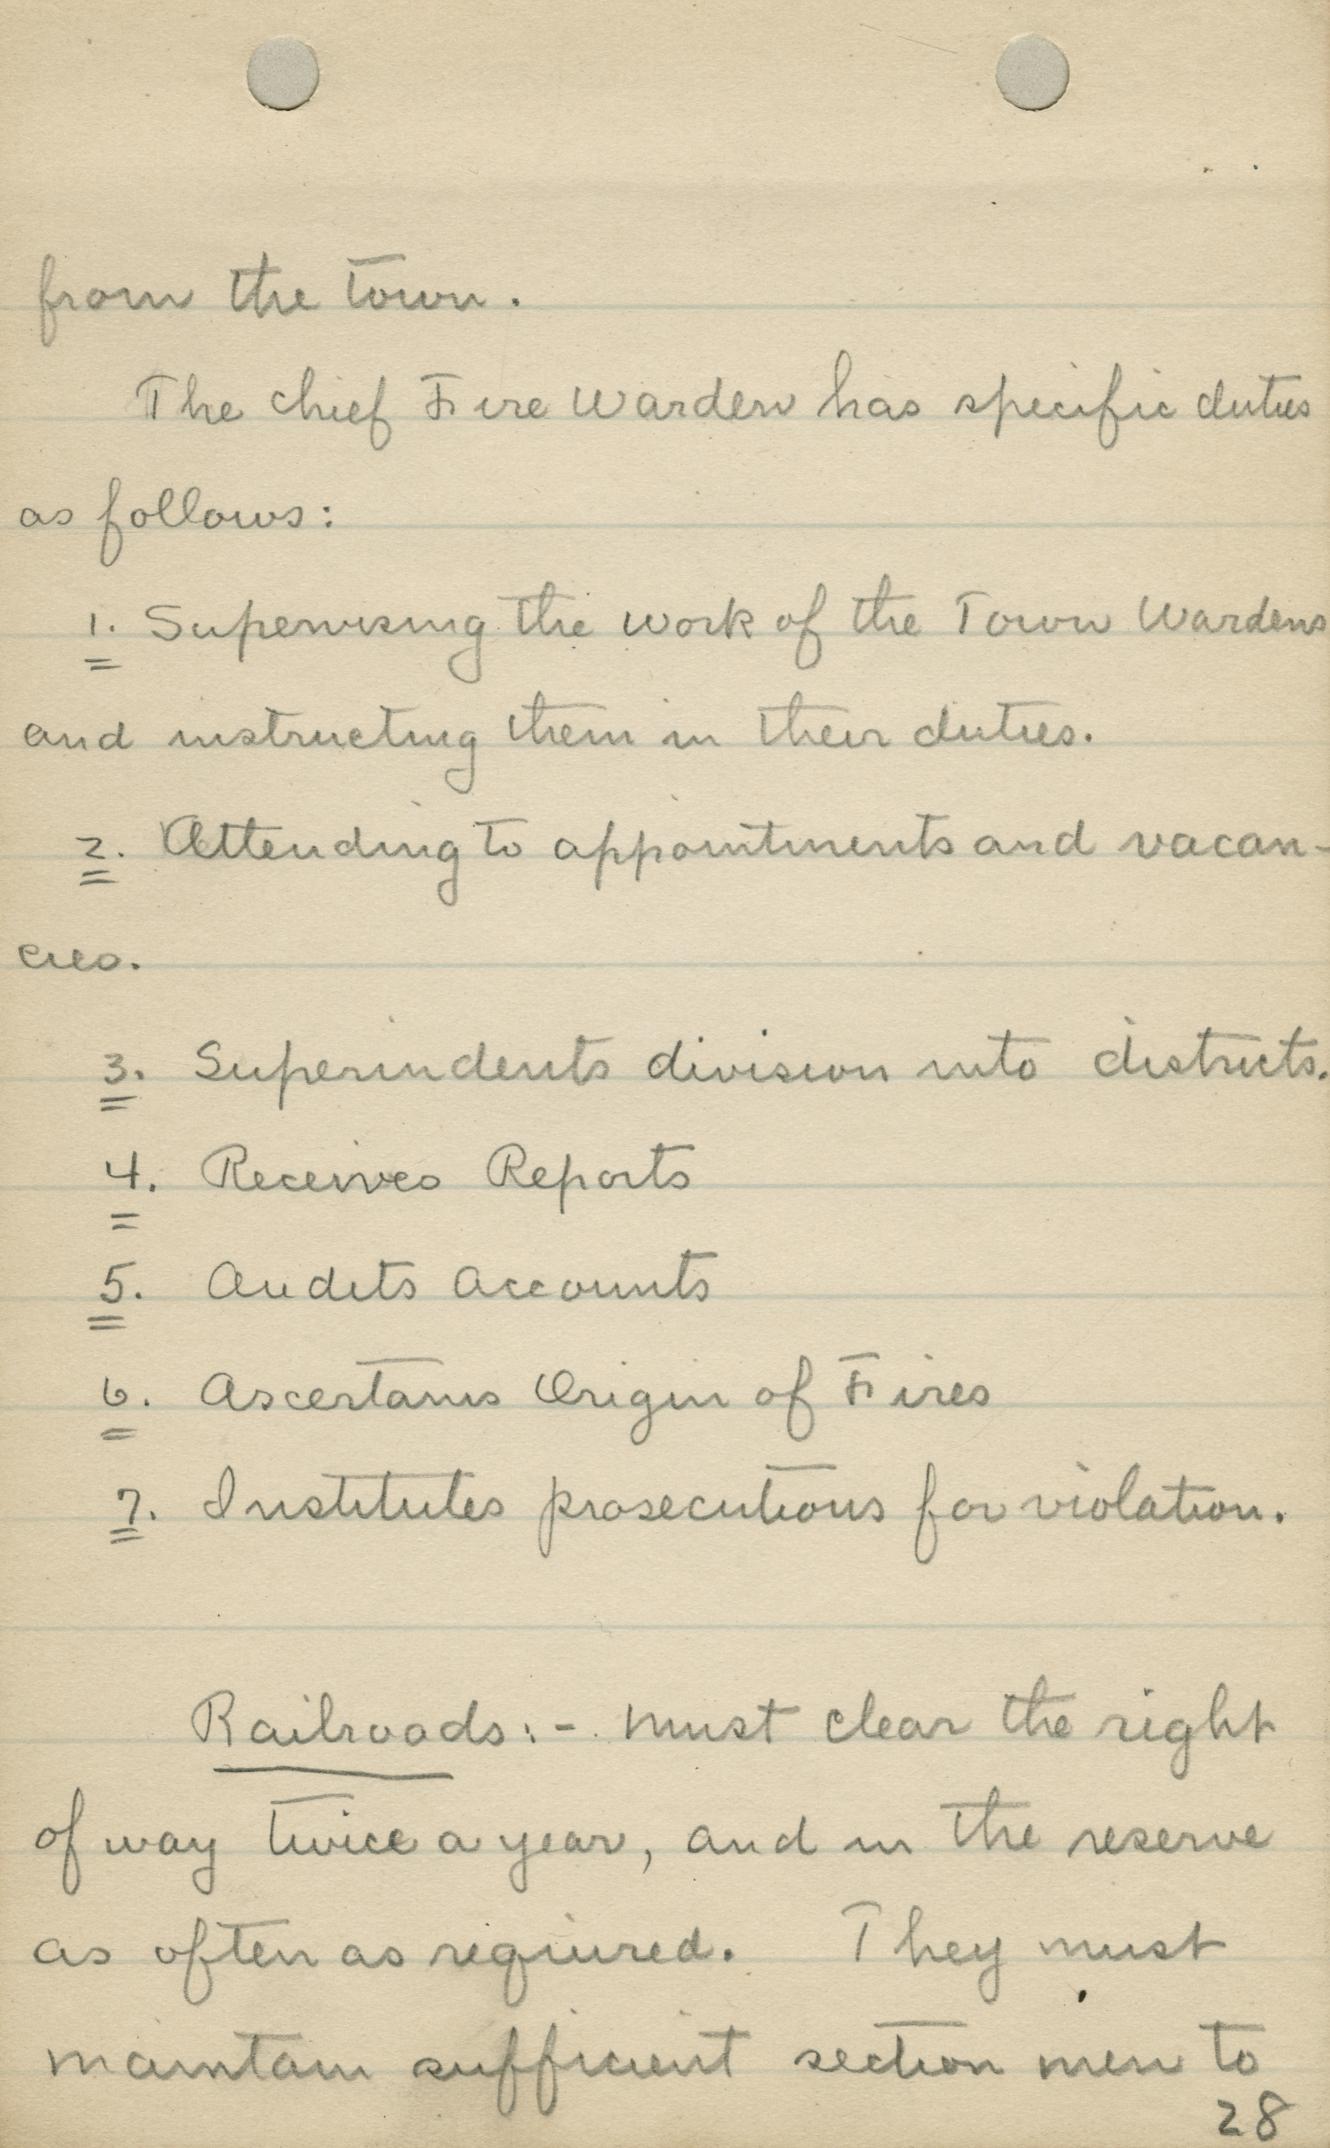 from the town.
The chief Fire Warden has specific duties
as follows:
1. Supervising the work of the Town Wardens
and instructing them in their duties.
2. Attending to appointments and vacan-
cies.
3. Superindents division into districts.
4. Receives Reports
5. Audits Accounts
6. Ascertains Origin of Fires
7. Institutes prosecutions for violation.
Railroads:- must clear the right
of way twice a year, and in the reserve
as often as required. They must
maintain sufficient section men to
28